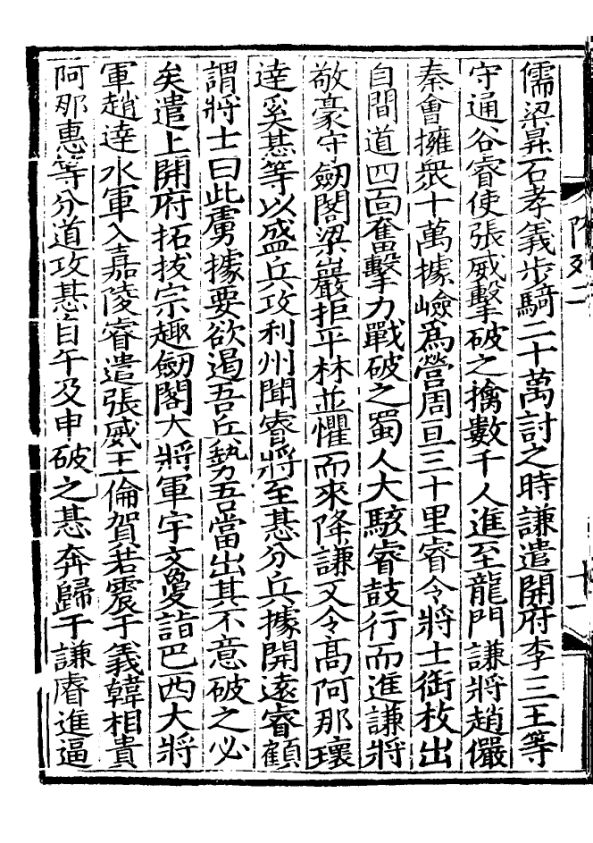 儒梁昇石孝義步騎二十萬討之時謙遣開府李三王等
守通谷睿使張威擊破之擒數千人進至龍門謙將趙儼
秦會擁衆十萬據嶮爲營周亘三十里睿令將士銜枚出
自間道四面奮擊力戰破之蜀人大駭睿鼓行而進謙將
敬豪守劒閣梁巖拒平林並懼而來降謙又令髙阿那瓌
達奚惎等以盛兵攻利州聞睿將至惎分兵據開遠睿顧
謂將士曰此虜據要欲遏吾兵勢吾當出其不意破之必
矣遣上開府拓拔宗趣劒閣大將軍宇文敻詣巴西大將
軍趙達水軍入嘉陵睿遣張威王倫賀若震于義韓相貴
阿那惠等分道攻惎自午及申破之惎奔歸于謙睿進逼